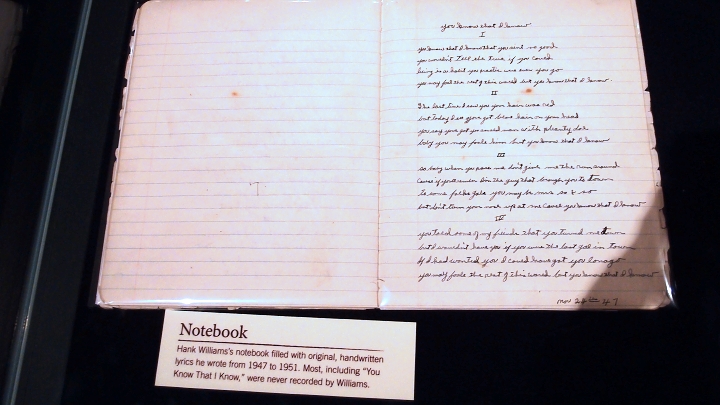 you know that I know
I
you know that I know that you aint no good
you wouldn't Tell the true if you could
lieing is a habit you practice where ever you go
you may fool the rest of this world but you know that I know.
II
The last time I saw you your hair was red
but today I see you've got blue hair on your head
you say you got you a man with plenty doe
baby you may foole him but you know that I know
III
so baby when you pass me don't give me the run around
cause if you remember Im the guy that brough you to town
to some folks gal you may be mrs so & so
but don't turn your nose up at me cause you know that I know
IV
you told some of my friends that you turned me down
but I wouldn't have you if you were the last gal in town
If I had wanted you I could have got you long ago
you may foole the rest of this world but you know that I know
nov 24th 47
Notebook
Hank Williams's notebook filled with original, handwritten
lyrics he wrote from 1947 to 1951. Most, including "You
Know That I Know," were never recorded by Williams.